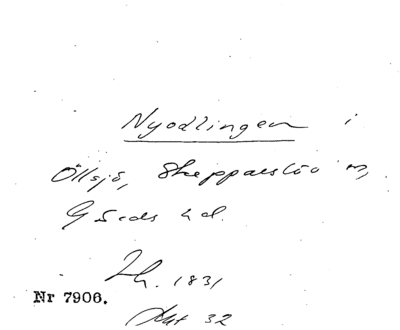 Nyodlingen i
Öllsjö, Skepparslöv sn,
Gärds hd.
Th. 1831
Nr 7906.
Akt 32